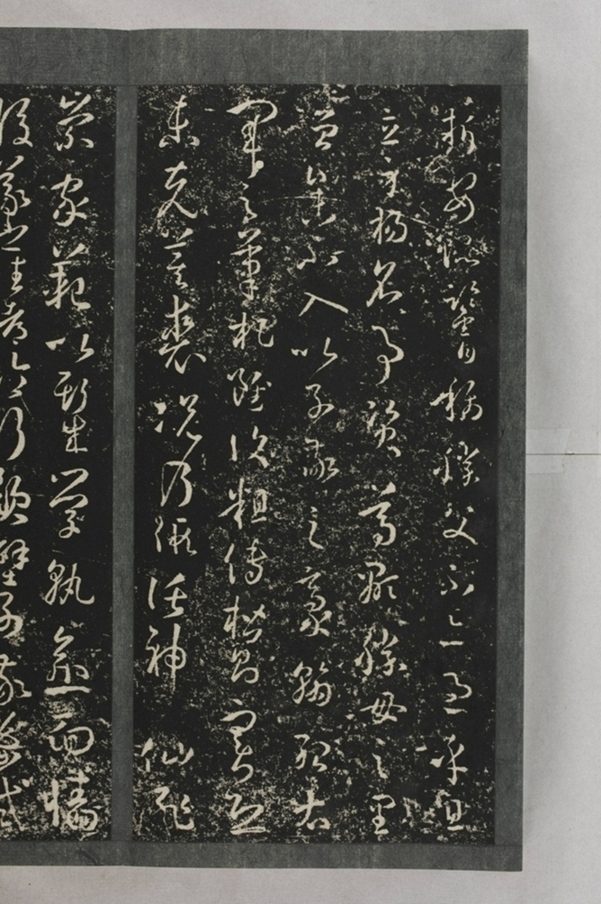 折安所鑒自稱勝父不亦過乎且
立身揚名事資尊顯勝母之里
曾參不入以子敬之豪翰紹右
軍之筆札雖復粗傳楷則實恐
未克箕裘況乃假託神仙恥
崇家範以斯成學孰愈面牆
後羲之往都臨行題壁子敬密拭